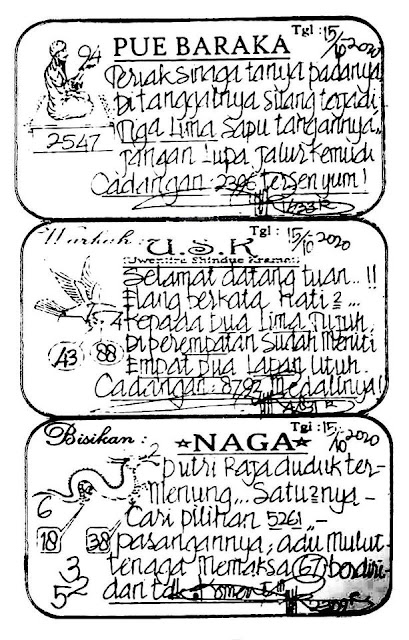 PUE BARAKA
Tgl : 15/10 2020
94
2547
Teriak sinaga tanya padanya
Ditanggalnya silang terjadi
Tiga Lima Sapu tangannya..
jangan Lupa jalur kemudi
Cadangan : 2396 Tersenyum!
Warkah :
U.S.K
Tgl : 15/10 2020
(Uwentira Shindue Kramat)
Selamat datang tuan...!!
Elang berkata Hati 2 ...
Kepada Dua Lima Tujuh
Diperempatan Sudah Menuti
Empat Dua Lapan Utuh.
Cadangan : 8792 Medalinya!
5 4
43 88
Bisikan :
NAGA
Tgl : 15/10 2020
Putri Raja duduk ter-
Menung... Satu2nya -
Cari pilihan 5261 ,,-
pasangannya, adu Mulut-
tenaga Memaksa (67) berdiri-
dan tak Komen
2
6
18 38
3
52